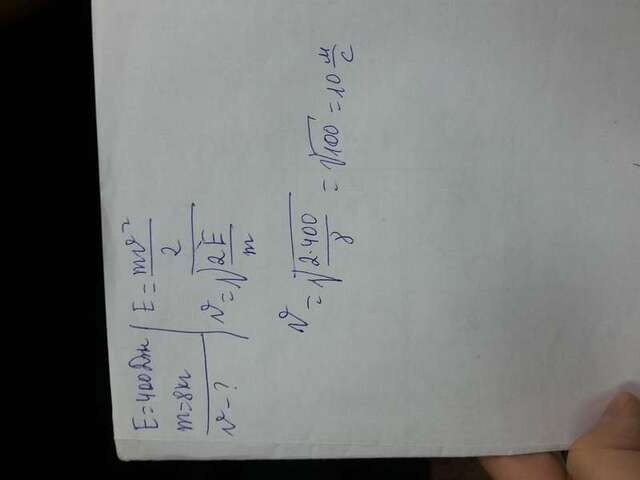 E=400Дж
m=8кг
v-?
E = mv²/2
v = √(2E/m)
v = √(2·400/8) = √100 = 10 м/с